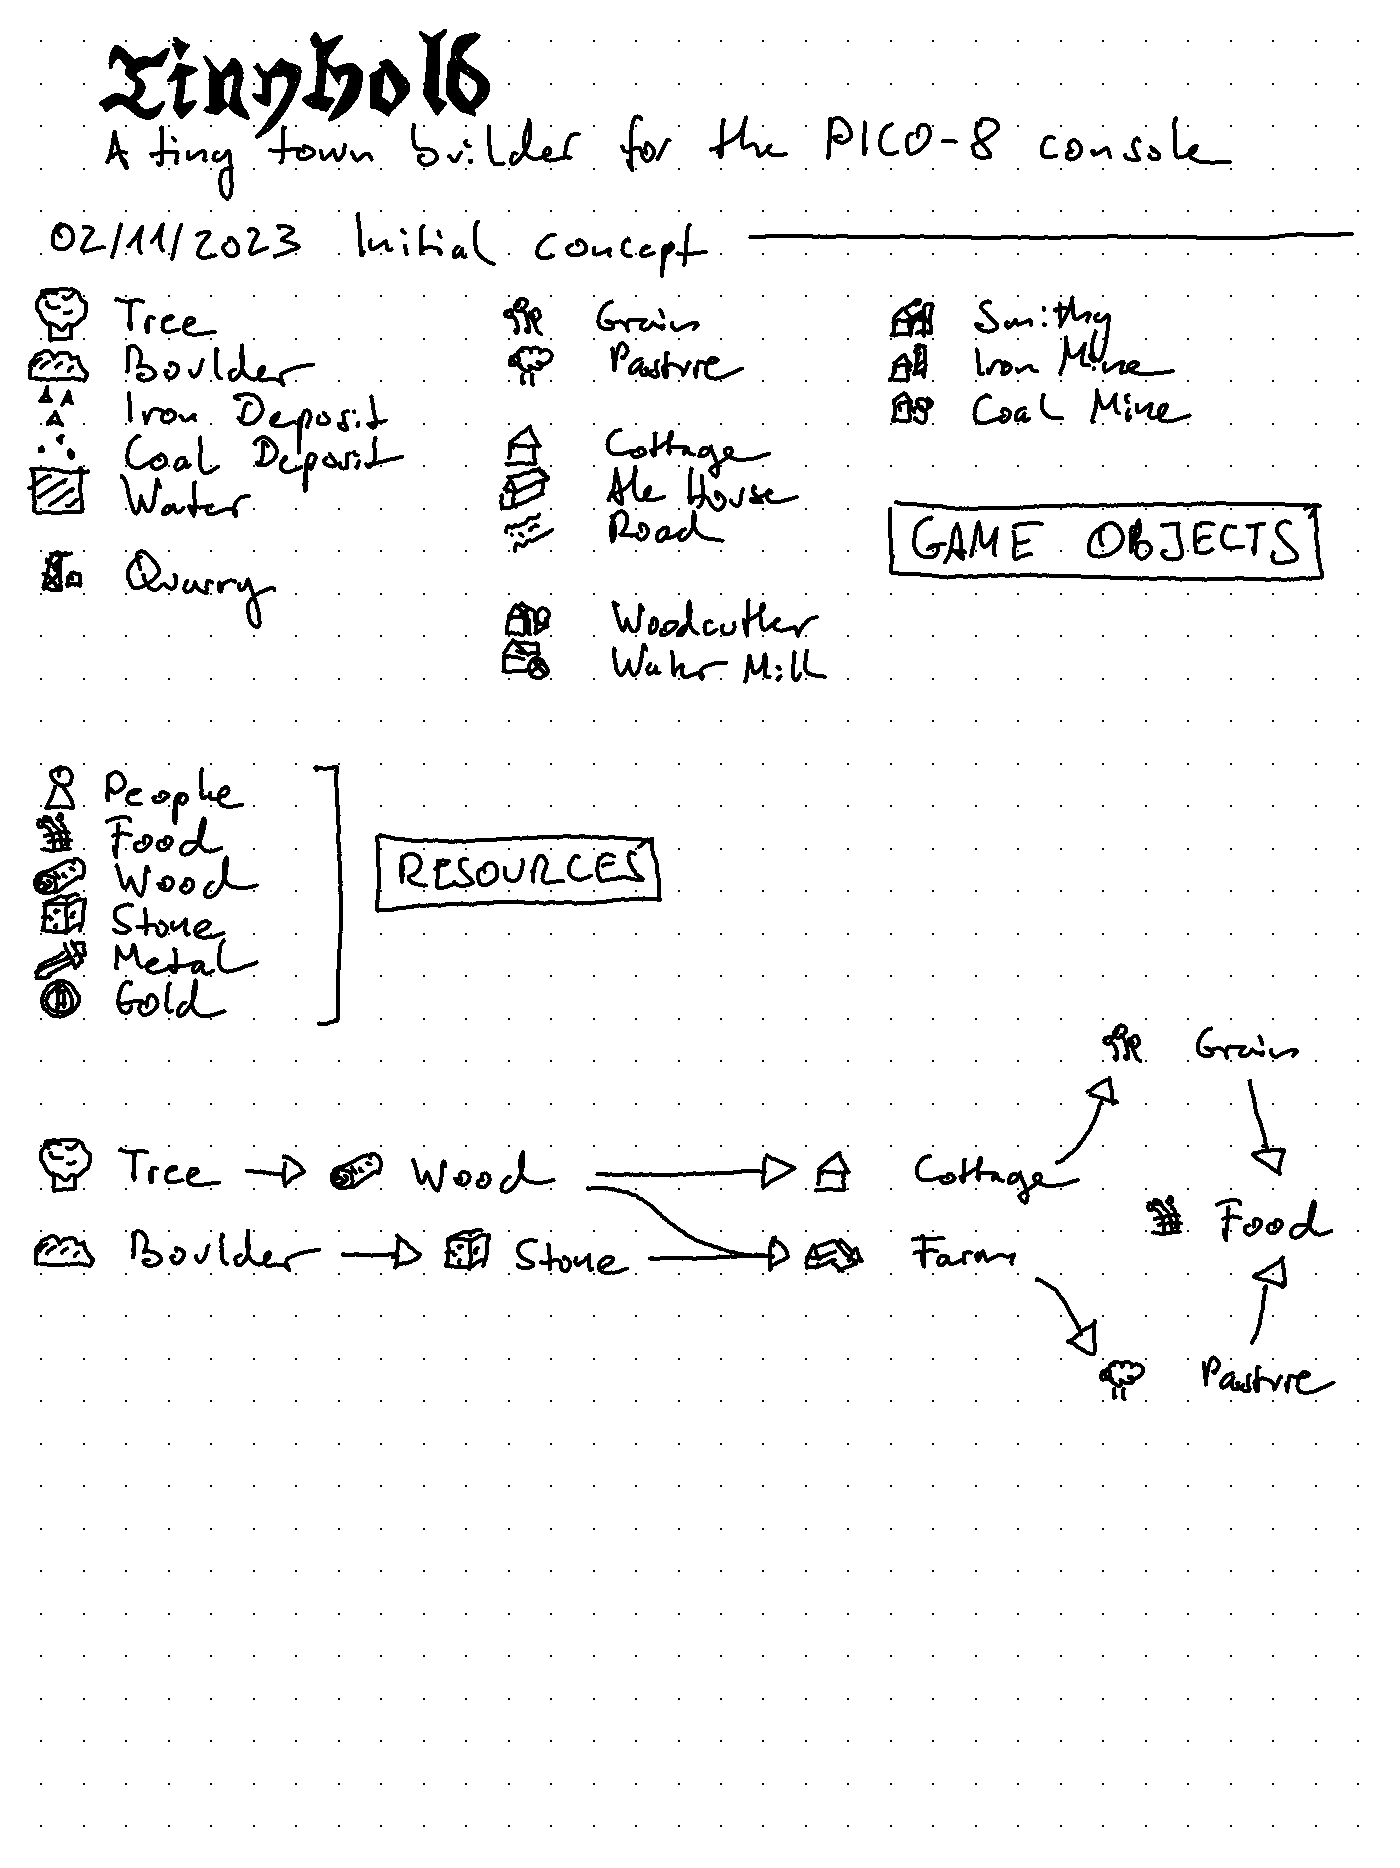 Tinyhold
A tiny town builder for the PICO-8 console
02/11/2023 Initial concept
Tree
Boulder
Iron Deposit
Coal Deposit
Water
Quarry
Grain
Pasture
Cottage
Ale House
Road
Woodcutter
Water Mill
Smithy
Iron Mine
Coal Mine
GAME OBJECTS
People
Food
Wood
Stone
Metal
Gold
RESOURCES
Grain
Tree Wood Cottage
Food
Boulder Stone Farm
Pasture